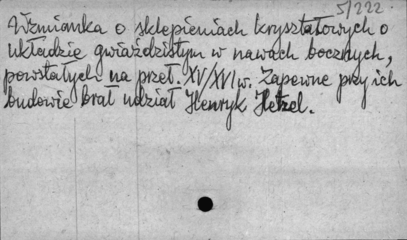 5/222.
Wzmianka o sklepieniach kryształowych o
układzie gwiaździstym w nawach bocznych,
powstałych na przeł. XV/XVI w. Zapewne przy ich
budowie brał udział Henryk Hetzel.